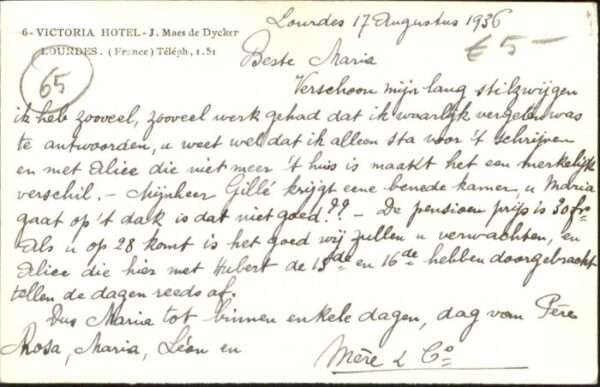 6-VICTORIA HOTEL-J. Maes de Dycker
LOURDES. (France) Téléph, 1.51
Lourdes 17 Augustus 1936
€ 5-
65
Beste Maria
Verschoon mijn lang stilzwijgen
ik heb zooveel, zooveel werk gehad dat ik waarlijk vergeten was
te antwoorden, u weet wel dat ik alleen sta voor 't schrijven
en met Alice die niet meer 't huis is maakt het een merkelijk
verschil. - Mijnheer Gillé krijgt eene benede kamer, u Maria
gaat op 't dak is dat niet goed? ?? - De pensioen prijs is 30 frs
Als u op 28 komt is het goed wij zullen u verwachten, en
Alice die hier met Hubert de 15de en 16de hebben doorgebracht
tellen de dagen reeds af.
Dus Maria tot binnen enkele dagen, dag vam Père
Rosa, Maria, Léon en
Mère & Co